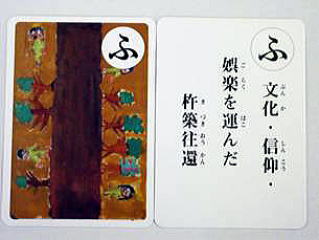 ふ
ふ
文化・信仰・
ぶんか しんこう
娯楽を運んだ
ごらく はこ
杵築往還
きづきおうかん